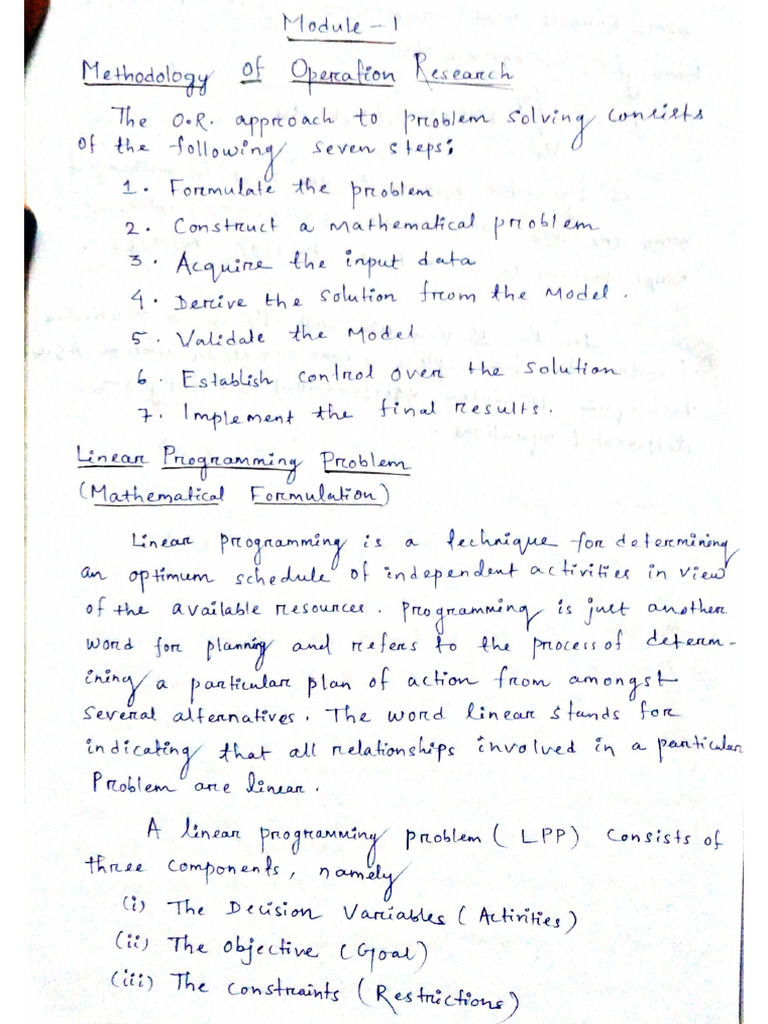 Module - 1
Methodology of Operation Research
The O.R. approach to problem solving consists
of the following seven steps;
1. Formulate the problem
2. Construct a mathematical problem
3. Acquire the input data
4. Derive the solution from the Model.
5. Validate the Model
6. Establish control over the solution
7. Implement the final results.
Linear Programming Problem
(Mathematical Formulation)
Linear programming is a technique for determining
an optimum schedule of independent activities in view
of the available resources. Programming is just another
word for planning and refers to the process of determ-
ining a particular plan of action from amongst
several alternatives. The word linear stands for
indicating that all relationships involved in a particular
Problem are linear.
A linear programming problem (LPP) consists of
three components, namely
(i) The Decision Variables (Activities)
(ii) The Objective (Goal)
(iii) The constraints (Restrictions)